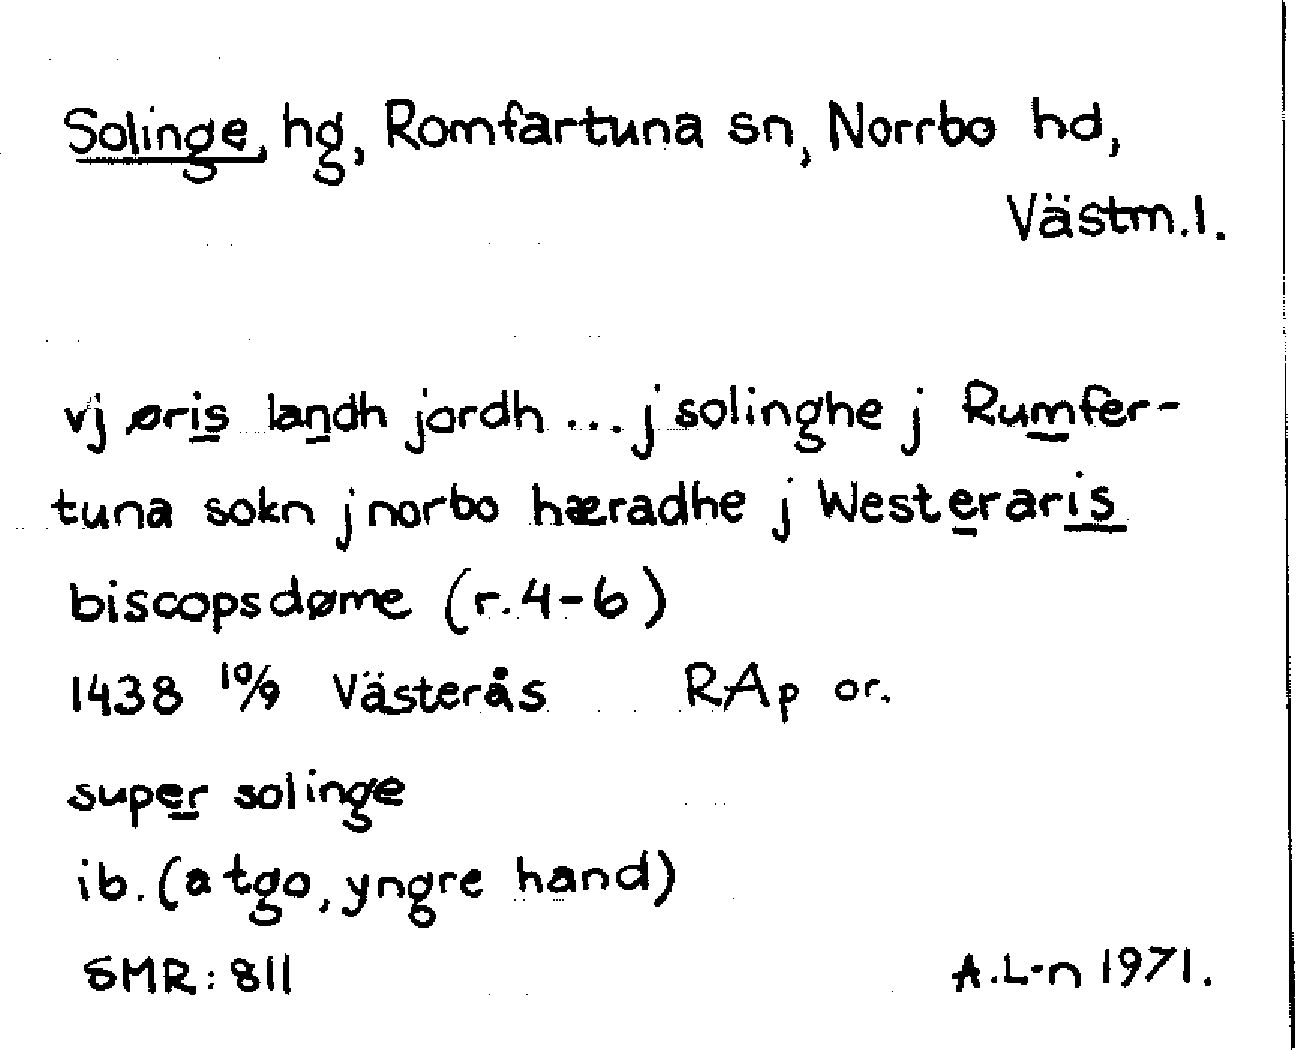 Solinge, hg, Romfartuna sn, Norrbo hd,
Västm.l.
vj øris landh jordh ... j solinghe j Rumfer-
tuna sokn j norbo hæradhe j Westeraris
biscopsdøme (r.4-6)
1438 10/9 Västerås RAp or.
super solinge
ib. (atgo, yngre hand)
SMR: 811 A.L-n 1971.